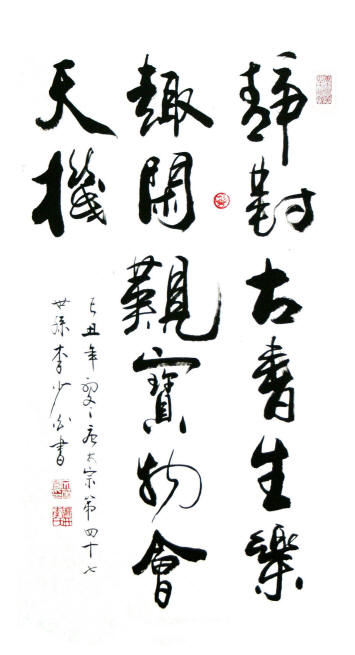 靜對古書生樂
趣閑觀寶物會
天機
己丑年初唐太宗第四十七
世孫李少書